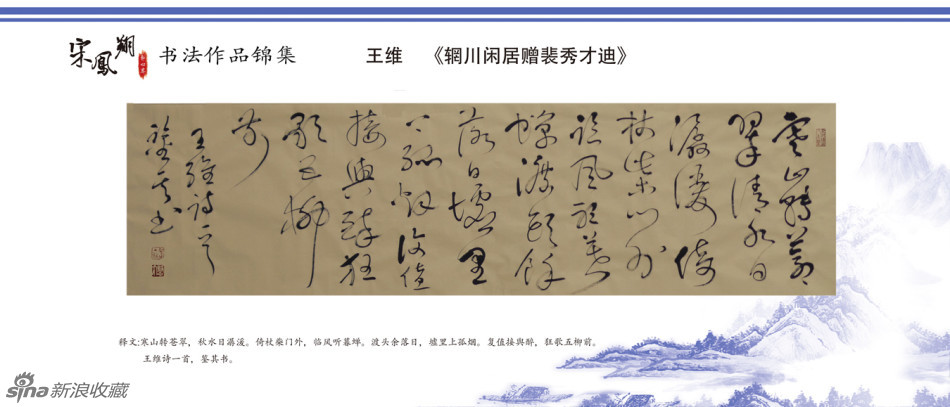 宋鳳翔
书法作品锦集
王维 《辋川闲居赠裴秀才迪》
寒山轉蒼
翠秋水日
潺湲倚
杖柴門外
臨風聽暮
蟬渡頭餘
落日墟里
上孤烟復值
接輿醉狂
歌五柳
前
王維詩一首
鑒其书
释文:寒山转苍翠，秋水日潺湲。倚杖柴门外，临风听暮蝉。渡头余落日，墟里上孤烟。复值接與醉，狂歌五柳前。
王维诗一首，鉴其书。
sina新浪收藏